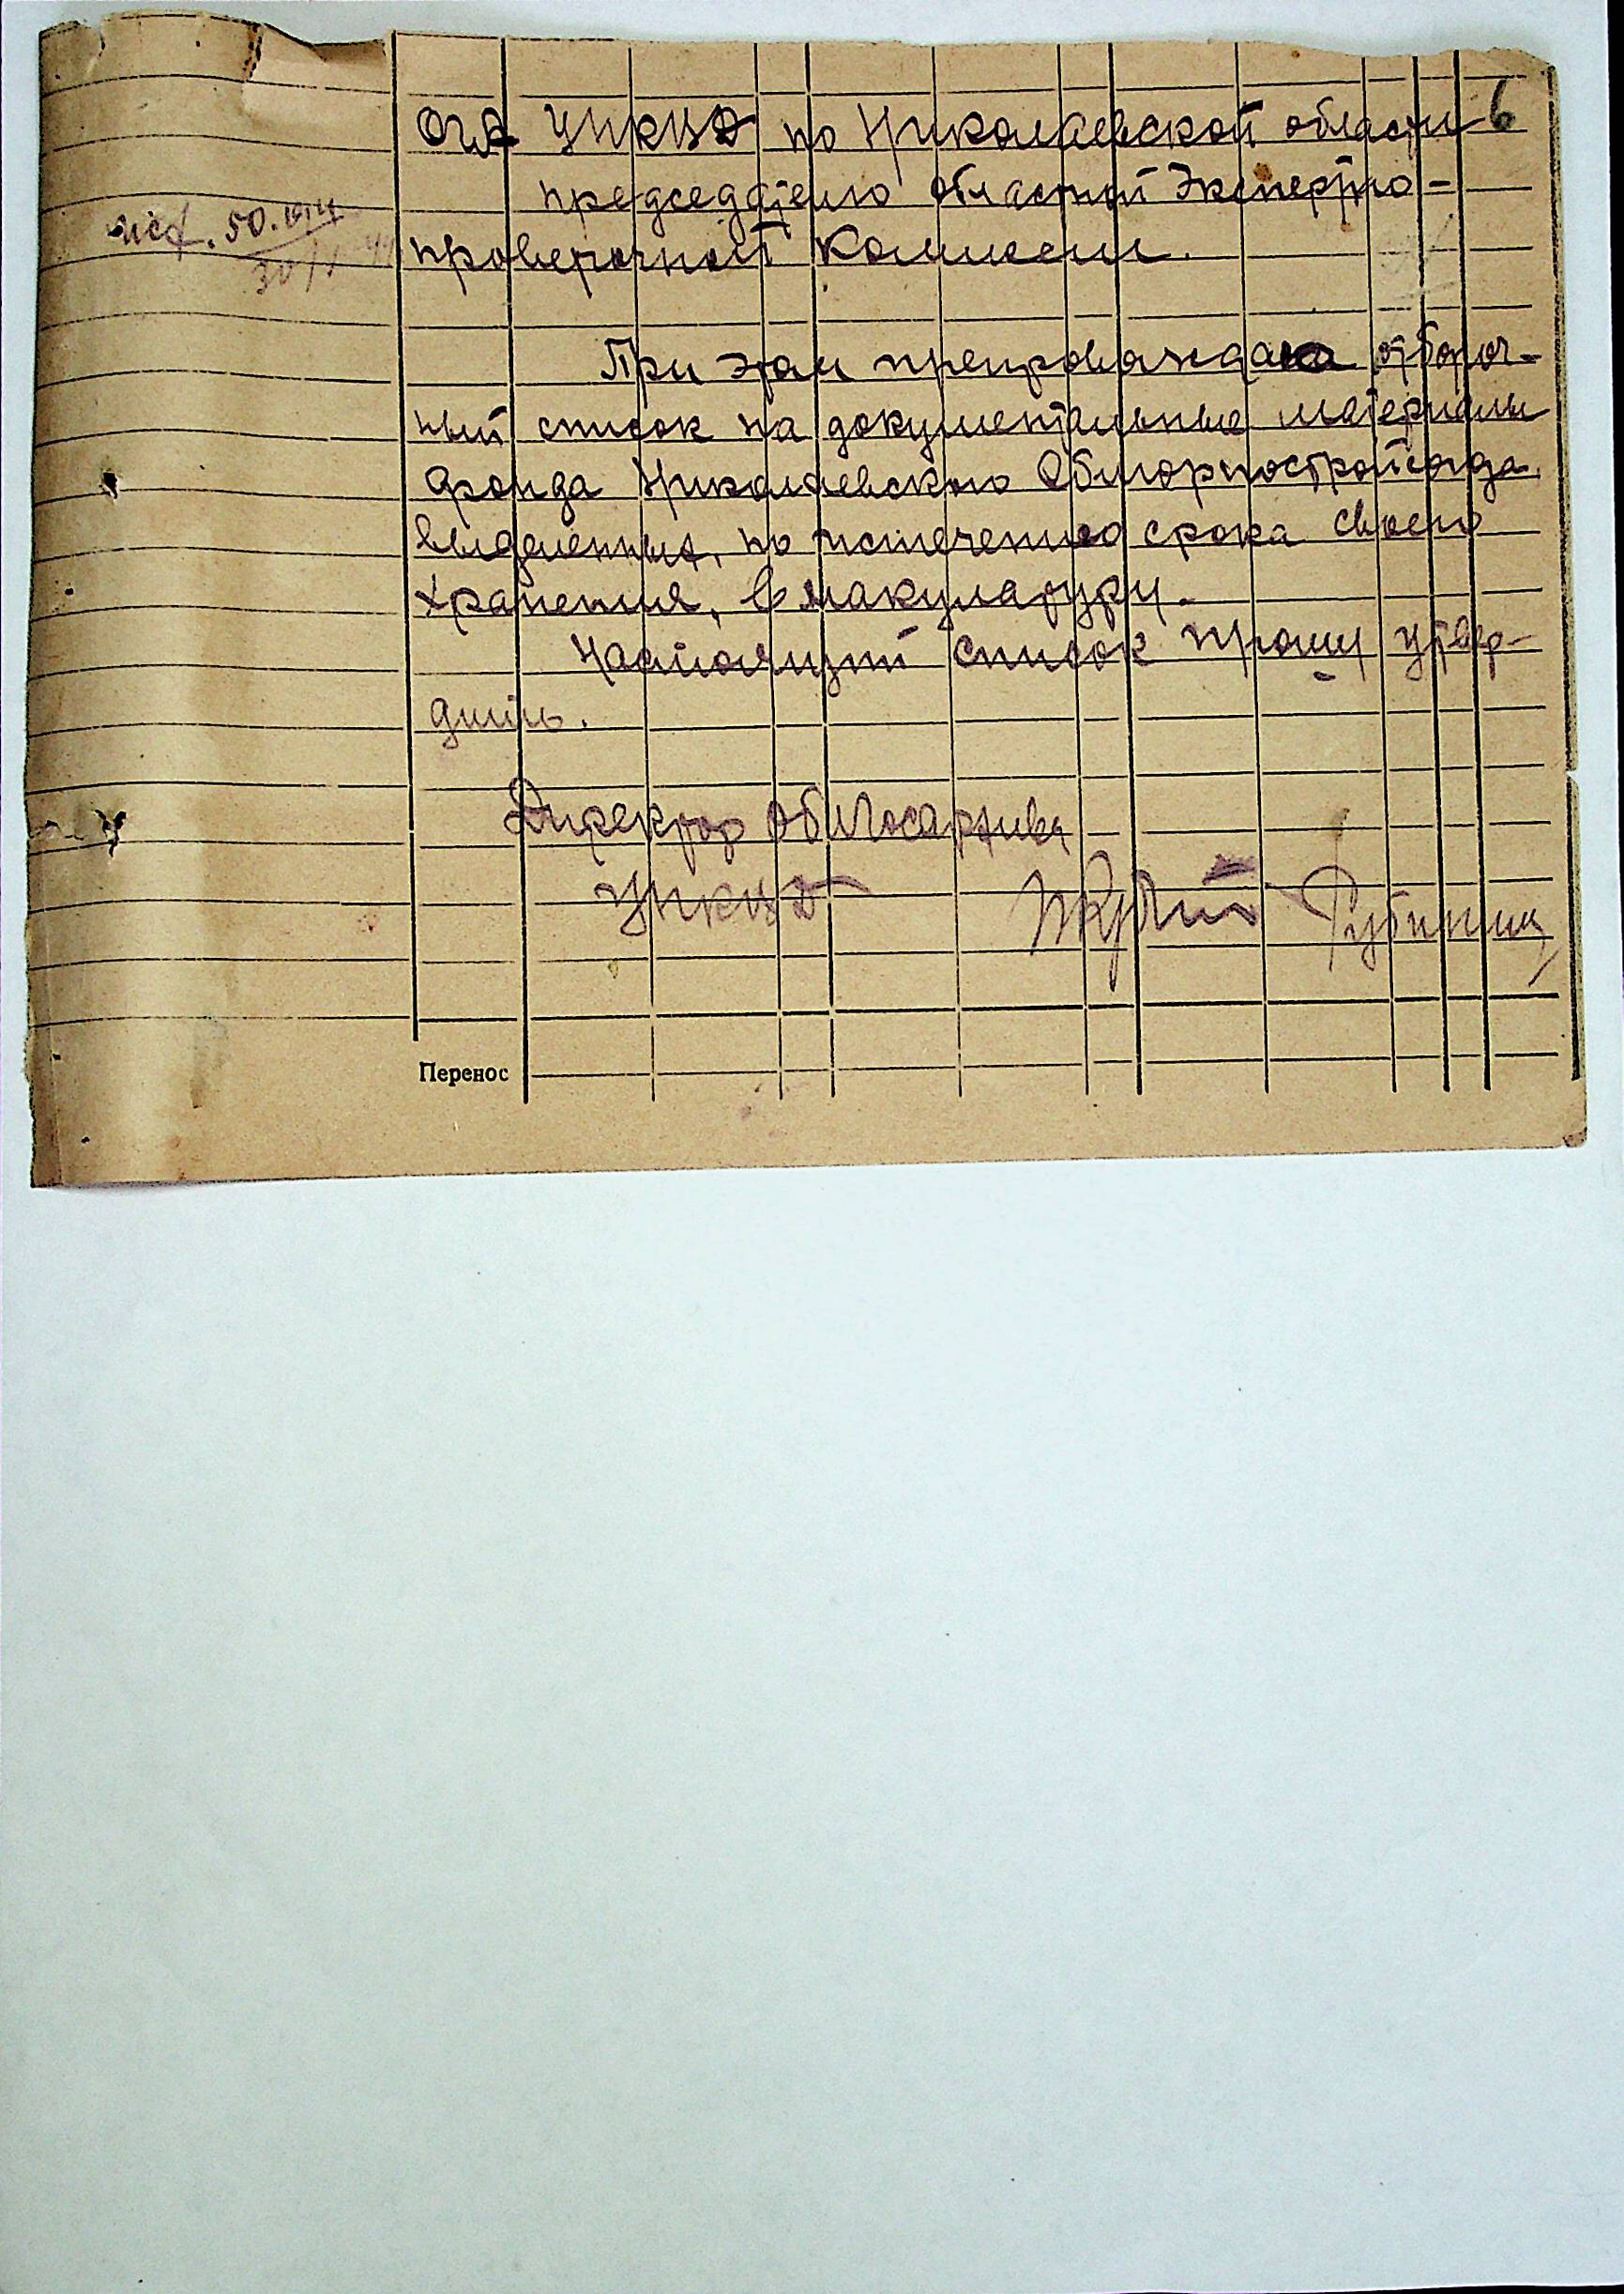 6
ОГА УНКВД по Николаевской области
председателю областной Экспертно-
проверочной Комиссии.
исх. 50.
При этом препровождаю отбороч-
ный список на документальные материалы
фонда Николаевского
выделенных, по истечению срока своего
хранения, в макулатуру.
Настоящий список прошу утвер-
дить.
Директор Облгосархива
УНКВД
Рубинштейн
Перенос